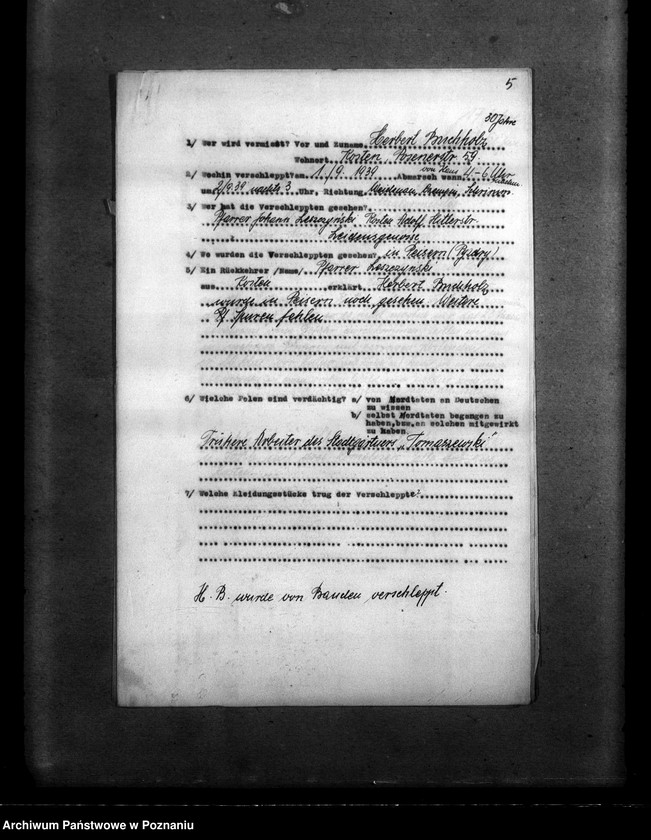 5
30 Jahre
1/ Wer wird vermisst? Vor und Zuname Herbert Buchholz
Wohnort Kosten Posenerstr. 59
2/ Wohin verschleppt? am 1./9. 1939. Abmarsch wann von Haus 4-6 Uhr
um 2/9.39 nachts 3 Uhr, Richtung
3/ Wer hat die Verschleppten gesehen?
Pfarrer Johann Leszczyński Kosten Adolf Hitlerstr.
Leidensgenosse
4/ Wo wurden die Verschleppten gesehen? in Peisern (Pyzdry)
5/ Ein Rückkehrer /Name/ Pfarrer Leszczynski
aus Kosten erklärt Herbert Buchholz
wurde in Peisern noch gesehen. Weitere
Spuren fehlen
6/ Wielche Polen sind verdächtig? a/ von Mordtaten an Deutschen
zu wissen
b/ selbst Mordtaten begangen zu
haben, bzw. an solchen mitgewirkt
zu haben.
Frühere Arbeiter des Stadtgärtners „Tomaszewski"
7/ Welche Kleidungsstücke trug der Verschleppte?
H. B. wurde von Banden verschleppt.
Archiwum Państwowe w Poznaniu